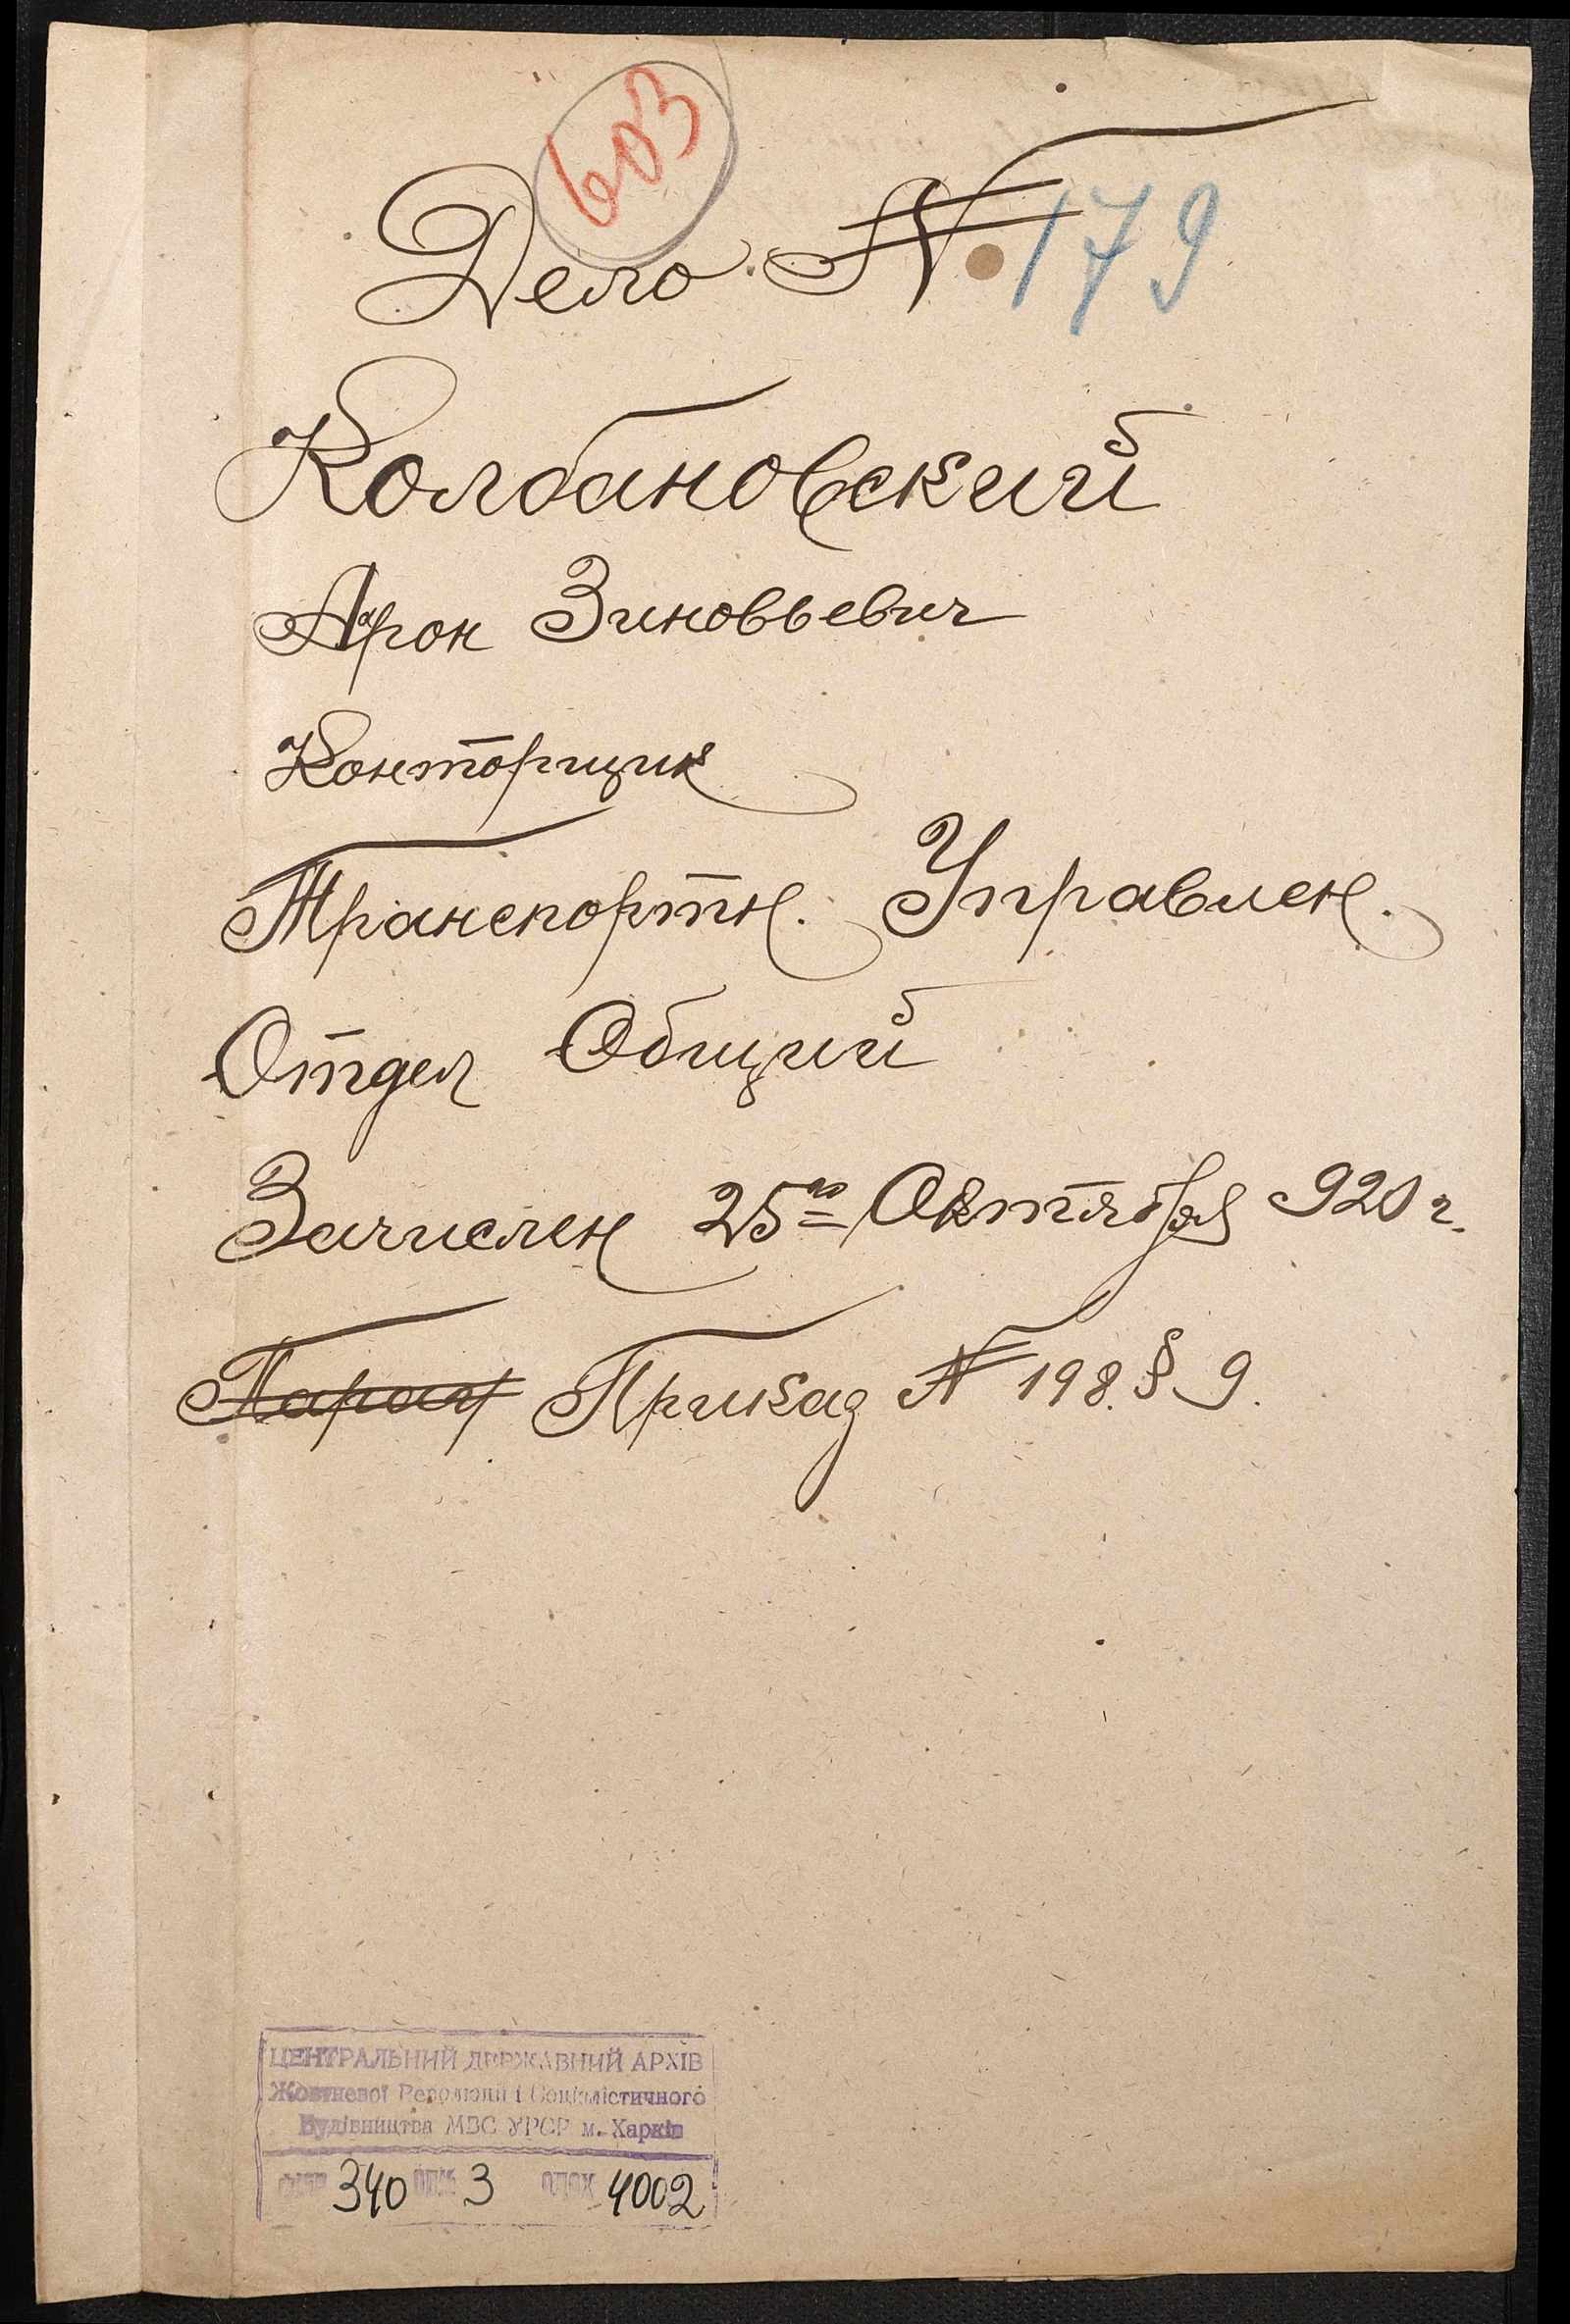 603
Дело № 179
Колбановский
Арон Зиновьевич
Конторщик
Транспортн. Управлен.
Отдел Общий
Зачислен 25го Октября 920 г.
Приказ № 198. § 9.
ЦЕНТРАЛЬНИЙ ДЕРЖАВНИЙ АРХІВ
Жовтневої Революції і Соціалістичного
Будівництва МВС УРСР м. Харків
ФОНД 340 ОПИС 3 ОДОХ 4002